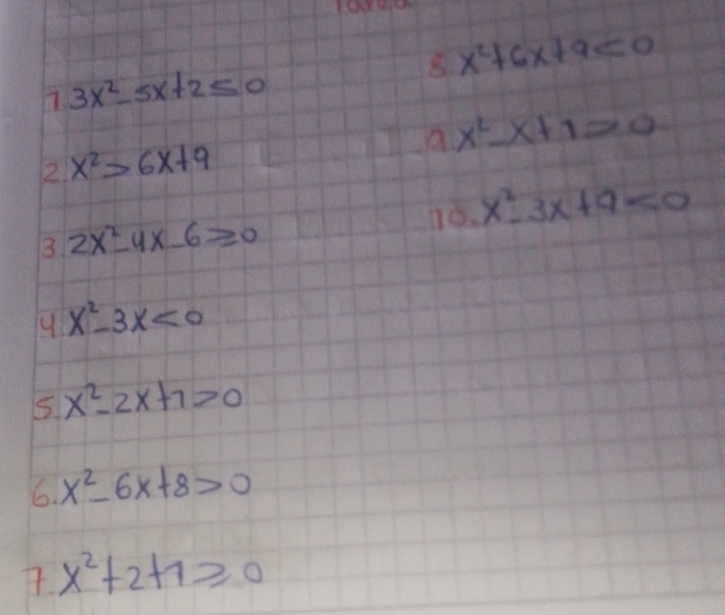 Tarea
1. 3x²-5x+2≤0
2. x²>6x+9
3. 2x²-4x-6≥0
4. x²-3x<0
5. x²-2x+1>0
6. x²-6x+8>0
7. x²+2+1≥0
8. x²+6x+9<0
9. x²-x+1>0
10. x²-3x+9<0